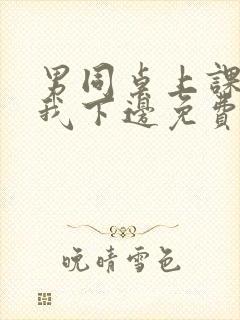 男同桌上課
我下邊免費
晚晴雪色